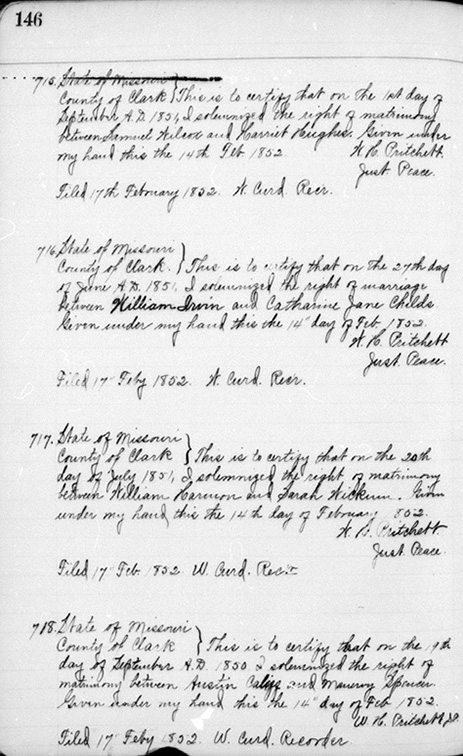 146
715. State of Missouri
County of Clark } This is to certify that on the 1st day of
September A.D. 1851, I solemnized the right of matrimony
between Samuel Wilcox and Harriet Hughes. Given under
my hand this the 14th Feb 1852. W. H. Pritchett
Just. Peace.
Filed 17th February 1852. W. Curd. Recr.
716. State of Missouri
County of Clark. } This is to certify that on the 27th day
of June A.D. 1851, I solemnized the right of marriage
between William Irvin and Catharine Jane Childs.
Given under my hand this the 14" day of Feb. 1852.
W. H. Pritchett
Just Peace.
Filed 17" Feby 1852. W. Curd. Recr.
717. State of Missouri
County of Clark } This is to certify that on the 20th
day of July 1851, I solemnized the right of matrimony
between William Harmon and Sarah . Given
under my hand this the 14th day of February 1852.
W. H. Pritchett
Just Peace.
Filed 17" Feb. 1852. W. Curd. Rec.r
718. State of Missouri
County of Clark } This is to certify that on the 19th
day of September A.D. 1850 I solemnized the right of
matrimony between Austin and Spencer.
Given under my hand this the 14" day of Feb 1852.
W. H. Pritchett, J.P.
Filed 17" Feby 1852. W. Curd. Recorder.